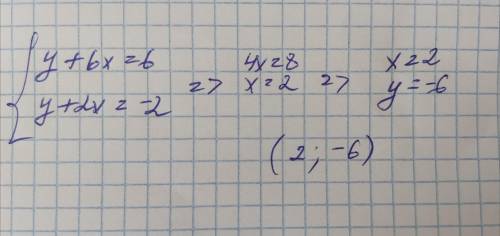 y + 6x = 6
y + 2x = -2
=> 4x = 8
x = 2 => x = 2
y = -6
(2; -6)